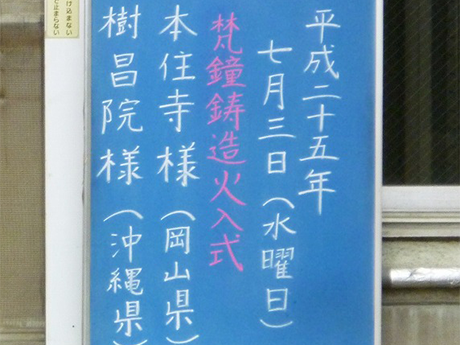 平成二十五年
七月三日(水曜日)
梵鐘鋳造火入式
本住寺様(岡山県)
樹昌院様(沖縄県)
け込まない
に止まらない